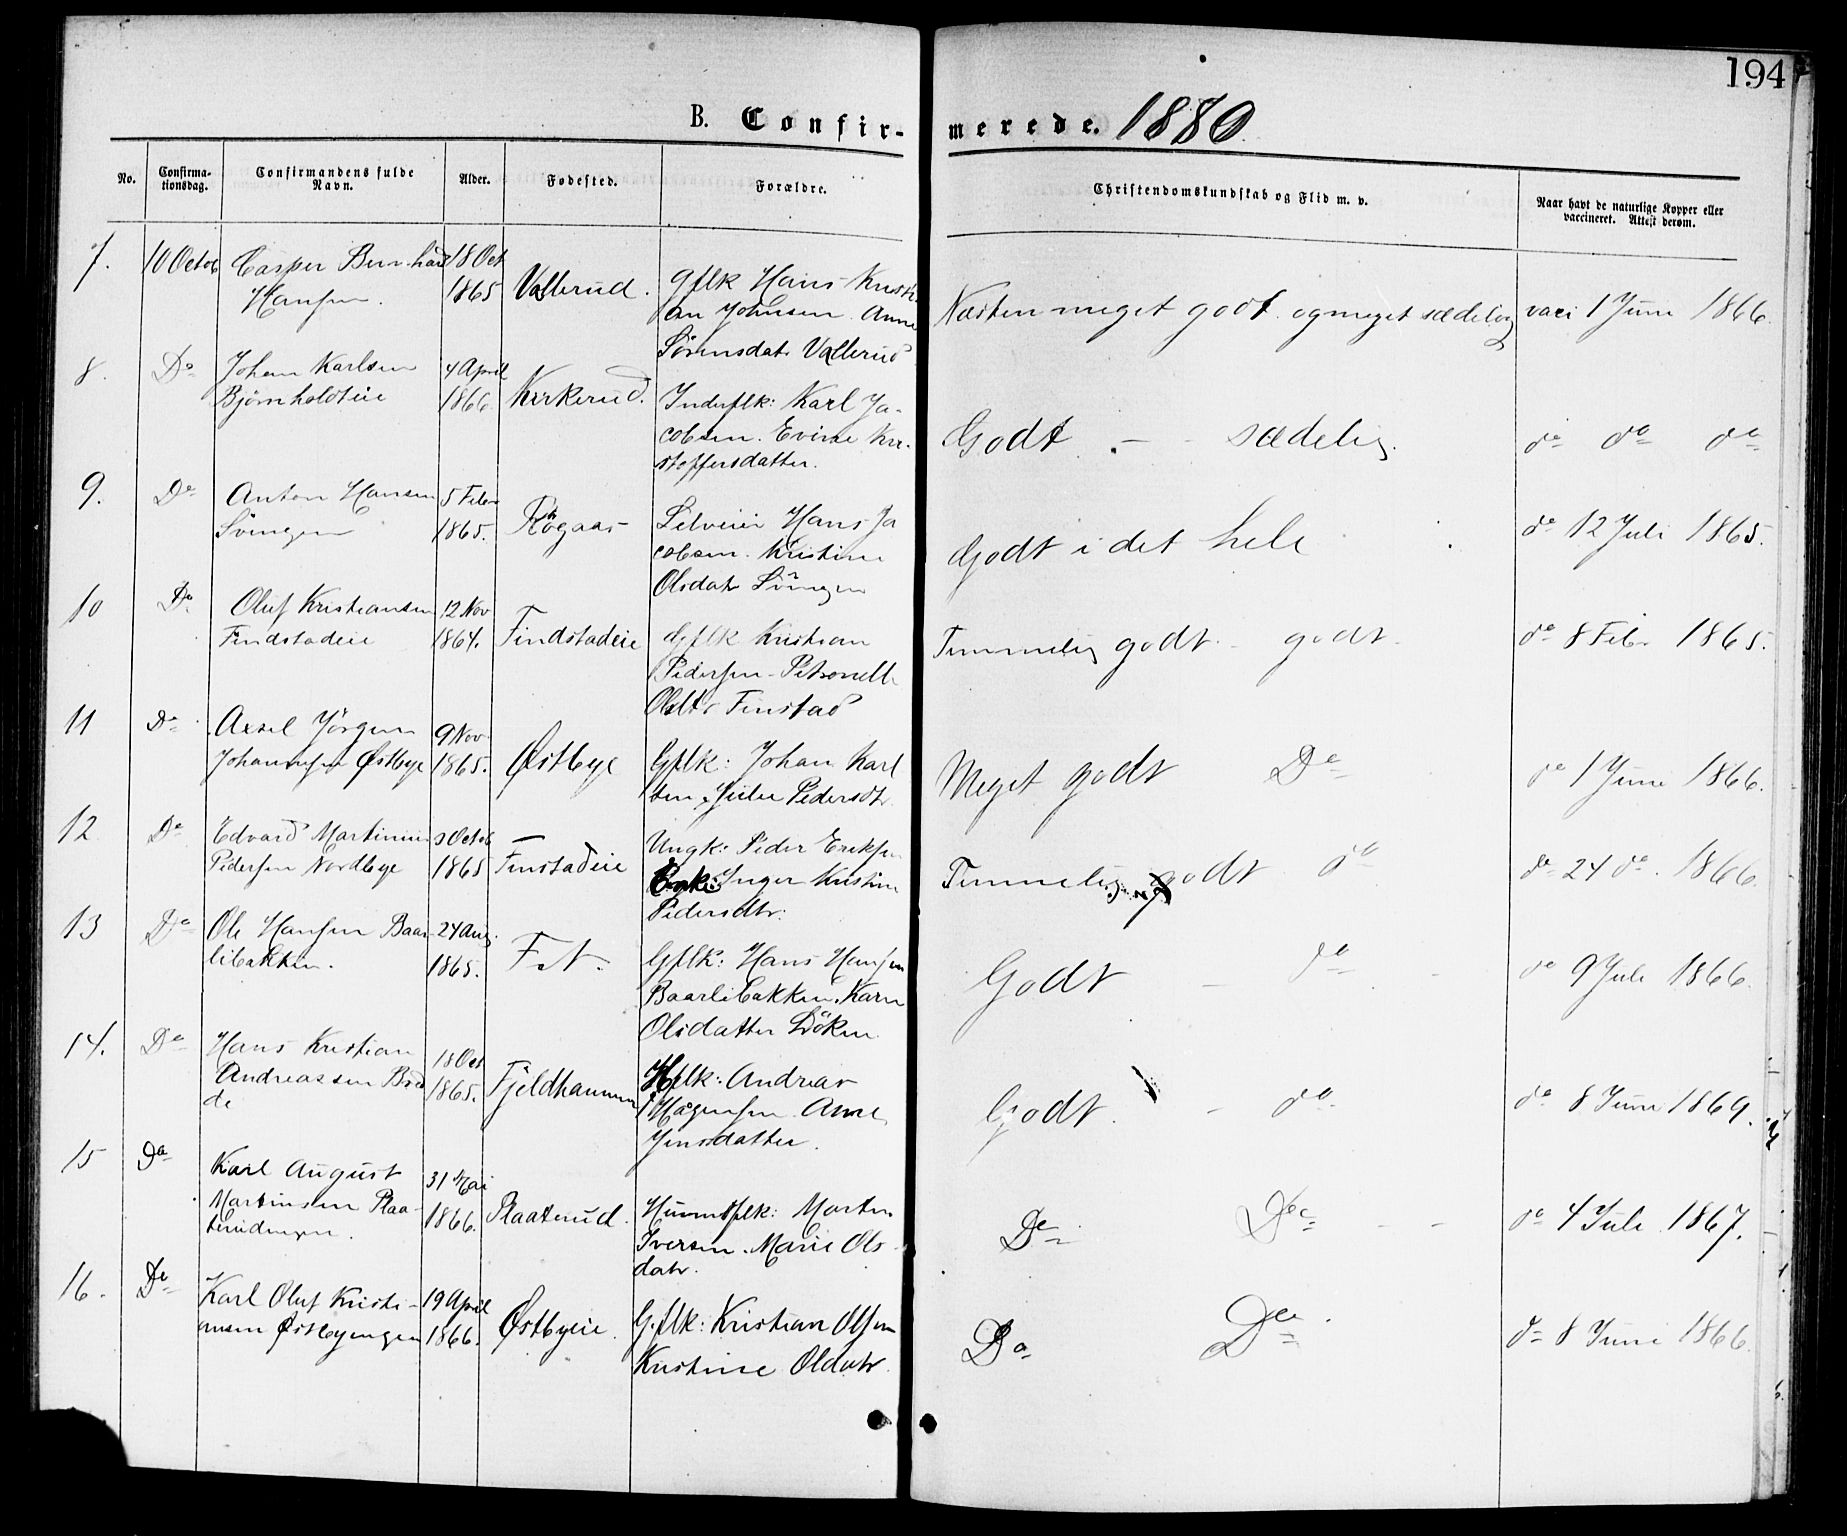 194
B. Confir- merede. 1880.
No. Confirma- Confirmandens fulde Alder. Fødested. Forældre. Christendomskundskab og Flid m. v. Naar havt de naturlige Kopper eller
tionsdag. Navn. vaccineret. Attest derom.
7. 10 Octob Casper Bernhard 18 Oct Gflk Hans Kristi
Hansen. 1865 Vallerud. an Johnsen. Anne Næsten meget godt. og meget sædelig vaci 1 Juni 1866.
Sörensdatr Vallerud
8. Do Johan Karlsen 4 April
Bjørnholdteie 1866. Kirkerud. Inderflk: Karl Ja-
cobsen. Evine Kri- Godt. - - sædelig. do do do
stoffersdatter.
9. Do Anton Hansen 5 Febr
Svingen 1865. Rögaas Selveier Hans Ja
cobsen. Kristine Godt i det hele do 12 Juli 1865.
Olsdatr Svingen
10 Do Oluf Kristiansen 12 Nov
Findstadeie 1864. Findstadeie Gflk Kristian Temmelig godt - godt. do 8 Febr 1865.
Pedersen - Petronelle
Olsdtr Finstad
11 Do Axsel Jörgen 9 Nov
Johannsen Østbye 1865. Østbye Gflk: Johan Karl Meget godt Do do 1 Juni 1866.
sen, Julie Pedersdtr.
12 Do Edvard Martinius Octob Ungk: Peder Eriksen
Pedersen Nordbye 1865 Finstadeie Inger Kristine Temmelig godt do do 24 do. 1866.
Pedersdtr:
13 Do Ole Hansen Baar- 24 Aug.
libakken. 1865. Fet. Gflk: Hans Hansen Godt - do - do 9 Juli 1866.
Baarlibakken. Karn
Olsdatter Döken
14. Do Hans Kristian 18 Oct
Andreassen Bræ 1865. Fjeldhammer flk: Andreas Godt. - do do 8 Juni 1869.
de Hågensen. Anne
Jensdatter.
15 Do Karl August 31 Mai
Martinsen Plaa- 1866. Plaaterud. Huusmflk: Martin Do Do - - do 4 Juli 1867.
terudengen. Iversen. Marie Ols-
datr.
16. Do Karl Oluf Kristi- 19 April
ansen Østbyengen 1866. Østbyeie. G.flk: Kristian Olsen Do Do. do 8 Juni 1866.
Kristine Oldatr.